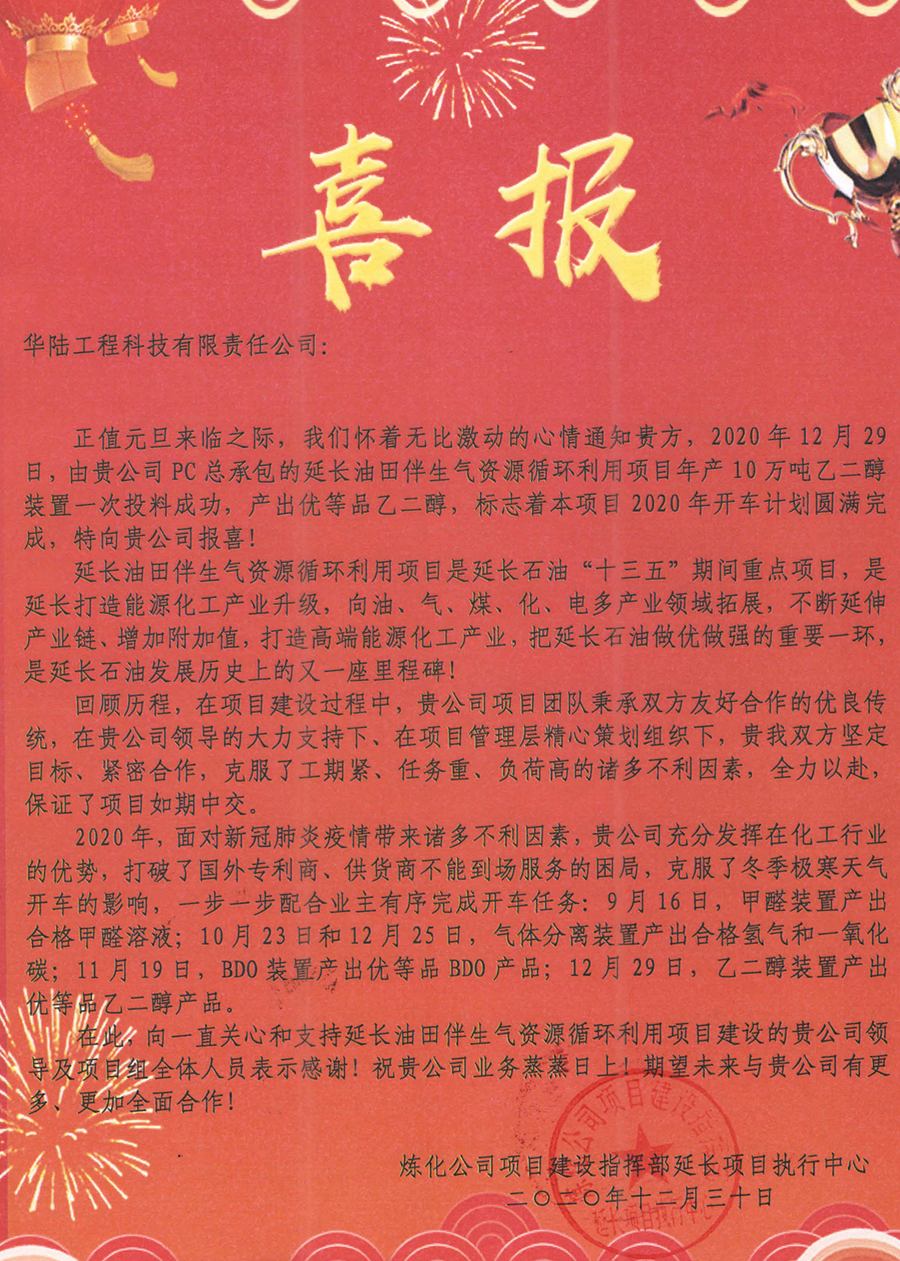 喜报
华陆工程科技有限责任公司：
正值元旦来临之际，我们怀着无比激动的心情通知贵方，2020 年 12 月 29
日，由贵公司 PC 总承包的延长油田伴生气资源循环利用项目年产 10 万吨乙二醇
装置一次投料成功，产出优等品乙二醇，标志着本项目 2020 年开车计划圆满完
成，特向贵公司报喜！
延长油田伴生气资源循环利用项目是延长石油“十三五”期间重点项目，是
延长打造能源化工产业升级，向油、气、煤、化、电多产业领域拓展，不断延伸
产业链、增加附加值，打造高端能源化工产业，把延长石油做优做强的重要一环，
是延长石油发展历史上的又一座里程碑！
回顾历程，在项目建设过程中，贵公司项目团队秉承双方友好合作的优良传
统，在贵公司领导的大力支持下、在项目管理层精心策划组织下，贵我双方坚定
目标、紧密合作，克服了工期紧、任务重、负荷高的诸多不利因素，全力以赴，
保证了项目如期中交。
2020 年，面对新冠肺炎疫情带来诸多不利因素，贵公司充分发挥在化工行业
的优势，打破了国外专利商、供货商不能到场服务的困局，克服了冬季极寒天气
开车的影响，一步一步配合业主有序完成开车任务：9 月 16 日，甲醛装置产出
合格甲醛溶液；10 月 23 日和 12 月 25 日，气体分离装置产出合格氢气和一氧化
碳；11 月 19 日，BDO 装置产出优等品 BDO 产品；12 月 29 日，乙二醇装置产出
优等品乙二醇产品。
在此，向一直关心和支持延长油田伴生气资源循环利用项目建设的贵公司领
导及项目组全体人员表示感谢！祝贵公司业务蒸蒸日上！期望未来与贵公司有更
多、更加全面合作！
炼化公司项目建设指挥部延长项目执行中心
二〇二〇年十二月三十日
公司项目建设指
延长项目执行中心